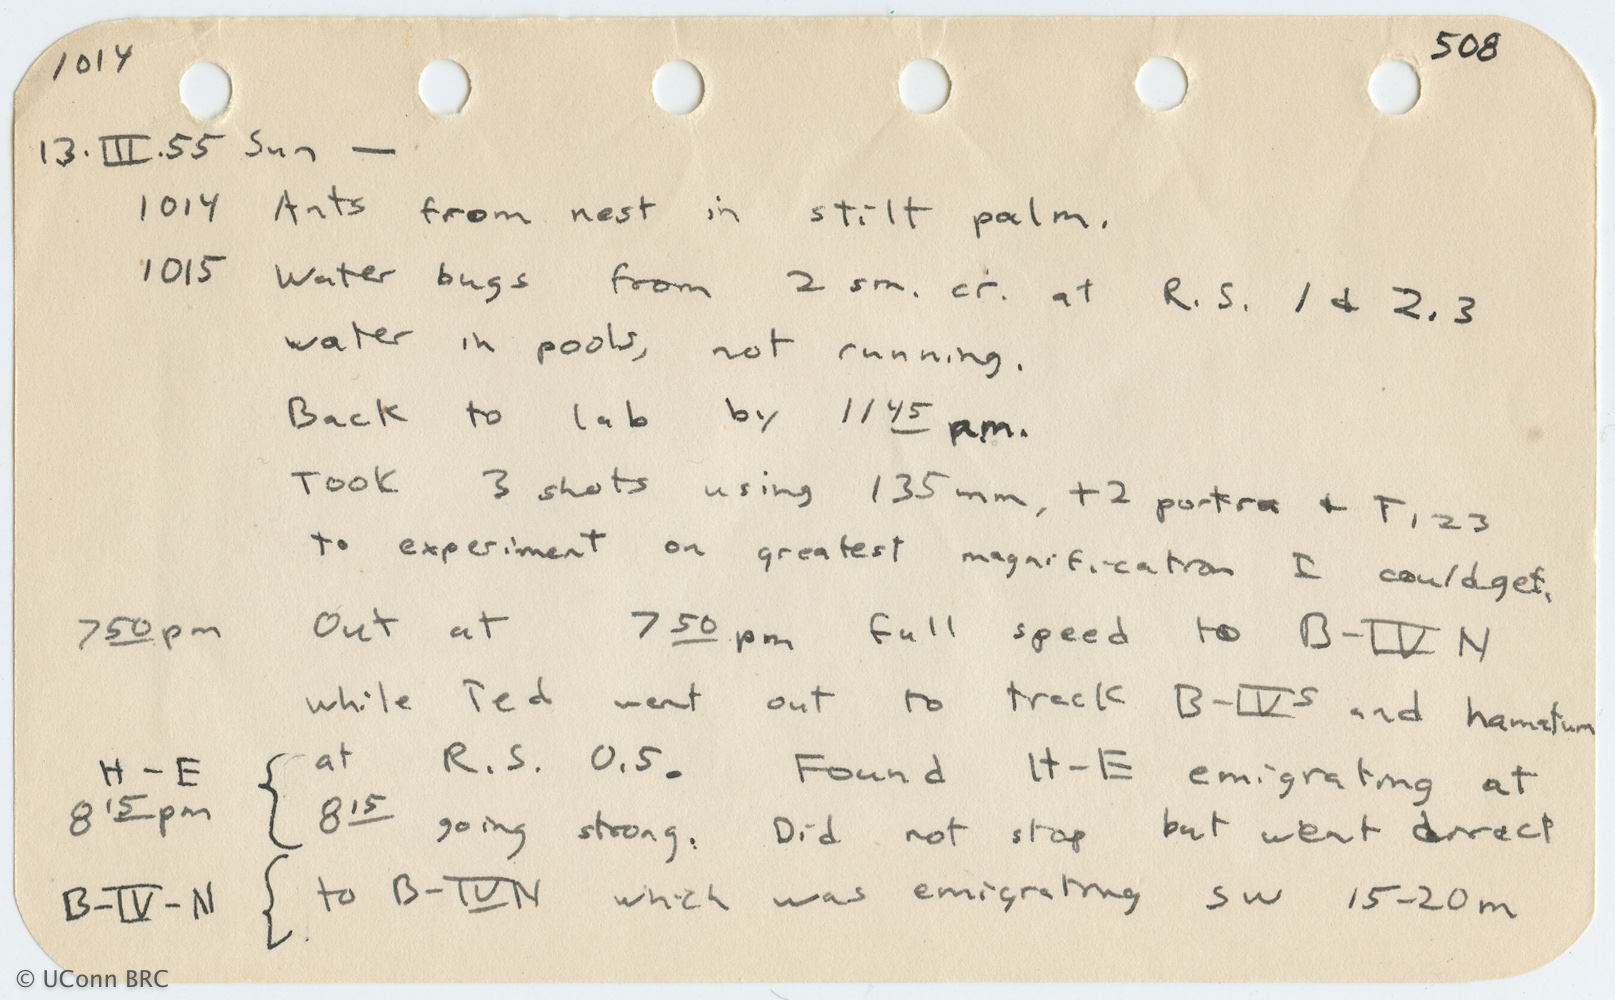 1014 508
13.III.55 Sun —
1014 Ants from nest in stilt palm.
1015 Water bugs from 2 sm. cr. at R.S. 1 & 2.3
water in pools, not running.
Back to lab by 11 45 pm.
Took 3 shots using 135mm, +2 portra + T,23
to experiment on greatest magnification I could get.
7 50 pm Out at 7 50 pm full speed to B-IV N
while Ted went out to track B-IV S and hamatum
H-E at R.S. 0.5. Found H-E emigrating at
8 15 pm 8 15 going strong. Did not stop but went direct
B-IV-N to B-IVN which was emigrating SW 15-20m
© UConn BRC